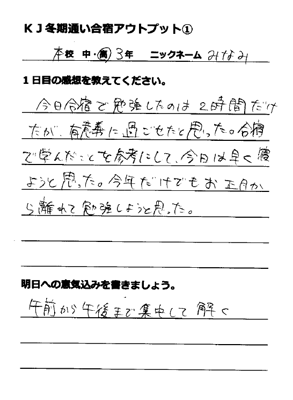 KJ冬期通い合宿アウトプット①
本校 中・高 3年 ニックネーム みなみ
1日目の感想を教えてください。
今日合宿で勉強したのは2時間だけ
だが、有意義に過ごせたと思った。合宿
で学んだことを参考にして、今日は早く寝
ようと思った。今年だけでもお正月か
ら離れて勉強しようと思った。
明日への意気込みを書きましょう。
午前から午後まで集中して解く